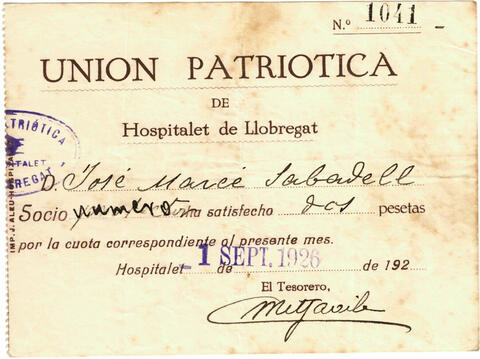 N.º 1041
UNION PATRIOTICA
DE
Hospitalet de Llobregat
D. José Marcé Sabadell
Socio numero ha satisfecho dos pesetas
por la cuota correspondiente al presente mes.
Hospitalet 1 SEPT. 1926 de de 192
El Tesorero,
IMP. J. ALEU-HOSPITALET